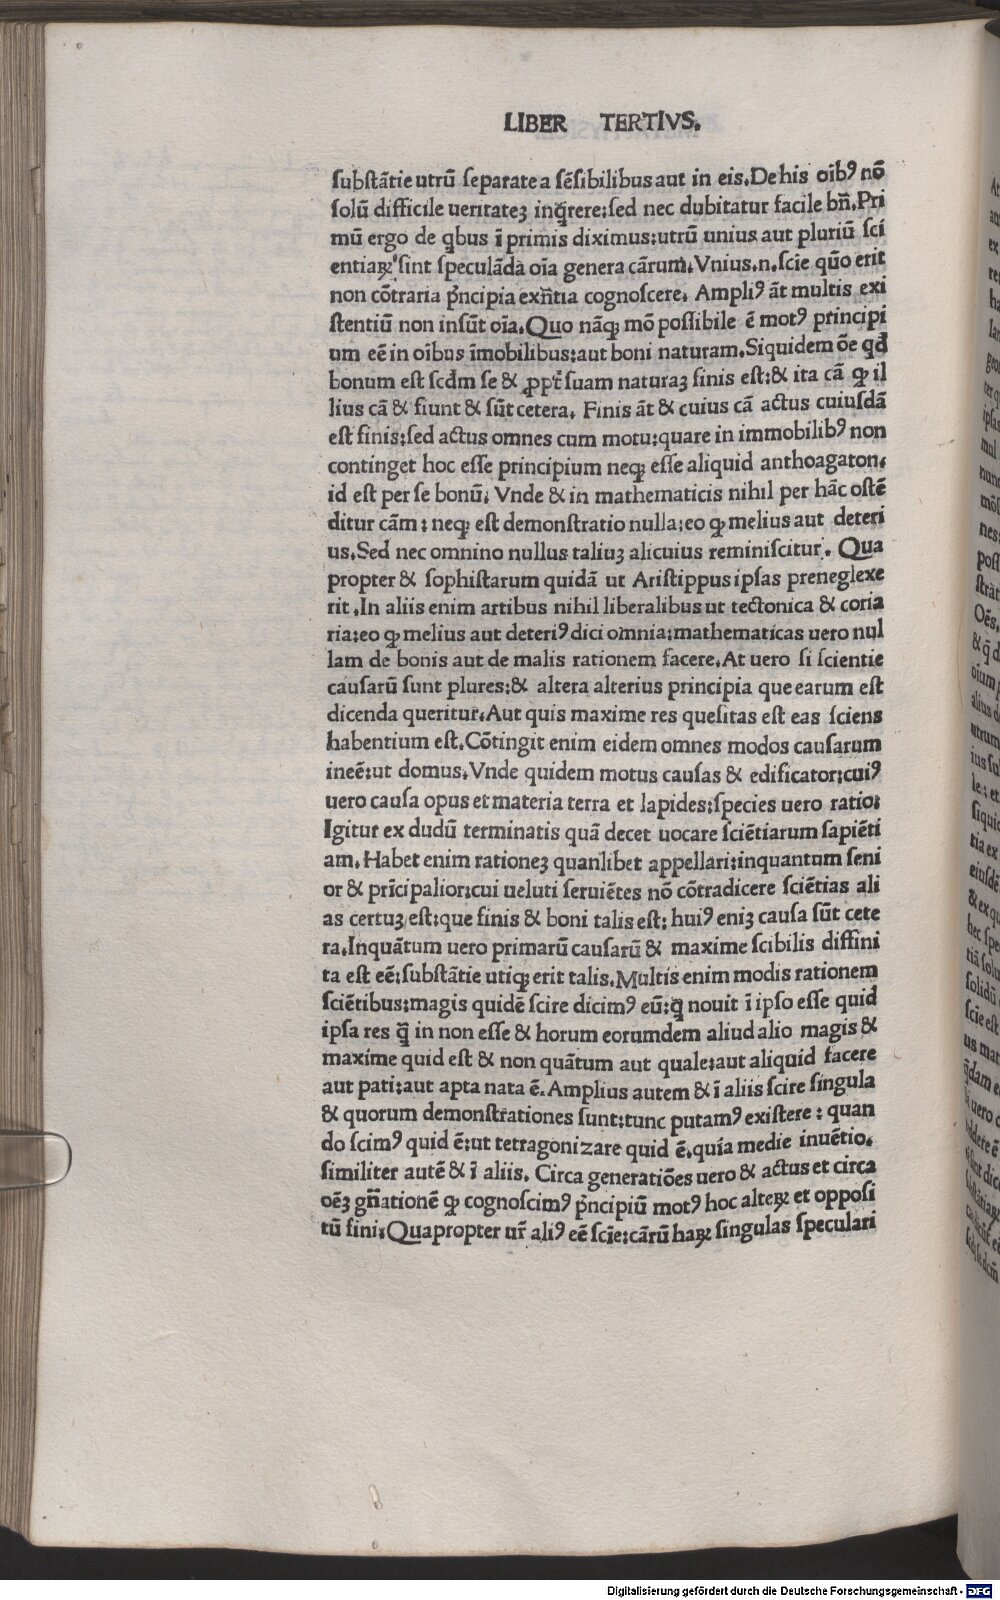 LIBER TERTIVS.
ſubſtãtie utrũ ſeparate a ſẽſibilibus aut in eis. De his oĩbꝰ nõ
ſolũ difficile ueritateꝫ inq̃rere: ſed nec dubitatur facile bñ. Pri
mũ ergo de q̃bus ĩ primis diximus: utrũ unius aut pluriũ ſci
entiaꝝ ſint ſpeculãda oĩa genera cãrum. Vnius .n. ſcie quõ erit
non cõtraria p̃ncipia exñtia cognoſcere. Ampliꝰ ãt multis exi
ſtentiũ non inſũt oĩa. Quo nãqꝫ mõ poſſibile ẽ motꝰ principi
um eẽ in oĩbus ĩmobilibus: aut boni naturam. Siquidem õe qd̃
bonum eſt ſcd̃m ſe & ꝓpt̃ ſuam naturaꝫ finis eſt: & ita cã ꝙ il
lius cã & fiunt & ſũt cetera. Finis ãt & cuius cã actus cuiuſdã
eſt finis: ſed actus omnes cum motu: quare in immobilibꝰ non
continget hoc eſſe principium neqꝫ eſſe aliquid anthoagaton.
id eſt per ſe bonũ. Vnde & in mathematicis nihil per hãc oſtẽ
ditur cãm: neqꝫ eſt demonſtratio nulla: eo ꝙ melius aut deteri
us. Sed nec omnino nullus taliuꝫ alicuius reminiſcitur. Qua
propter & ſophiſtarum quidã ut Ariſtippus ipſas preneglexe
rit. In aliis enim artibus nihil liberalibus ut tectonica & coria
ria: eo ꝙ melius aut deteriꝰ dici omnia: mathematicas uero nul
lam de bonis aut de malis rationem facere. At uero ſi ſcientie
cauſarũ ſunt plures: & altera alterius principia que earum eſt
dicenda queritur. Aut quis maxime res queſitas eſt eas ſciens
habentium eſt. Cõtingit enim eidem omnes modos cauſarum
ineẽ: ut domus. Vnde quidem motus cauſas & edificator: cuiꝰ
uero cauſa opus et materia terra et lapides: ſpecies uero ratio:
Igitur ex dudũ terminatis quã decet uocare ſciẽtiarum ſapiẽti
am. Habet enim rationeꝫ quanlibet appellari: inquantum ſeni
or & prĩcipalior: cui ueluti ſeruiẽtes nõ cõtradicere ſciẽtias ali
as certuꝫ eſt: que finis & boni talis eſt: huiꝰ eniꝫ cauſa ſũt cete
ra. Inquãtum uero primarũ cauſarũ & maxime ſcibilis diffini
ta eſt eẽ: ſubſtãtie utiqꝫ erit talis. Multis enim modis rationem
ſciẽtibus: magis quidẽ ſcire dicimꝰ eũ: q̃ nouit ĩ ipſo eſſe quid
ipſa res q̃ in non eſſe & horum eorumdem aliud alio magis &
maxime quid eſt & non quãtum aut quale: aut aliquid facere
aut pati: aut apta nata ẽ. Amplius autem & ĩ aliis ſcire ſingula
& quorum demonſtrationes ſunt: tunc putamꝰ exiſtere: quan
do ſcimꝰ quid ẽ: ut tetragonizare quid ẽ, quia medie inuẽtio.
ſimiliter autẽ & ĩ aliis. Circa generatiões uero & actus et circa
oẽꝫ gñationẽ ꝙ cognoſcimꝰ p̃ncipiũ motꝰ hoc alteꝝ et oppoſi
tũ fini. Quapropter ur̃ aliꝰ eẽ ſcie: cãrũ haꝝ ſingulas ſpeculari
Digitalisierung gefördert durch die Deutsche Forschungsgemeinschaft - DFG